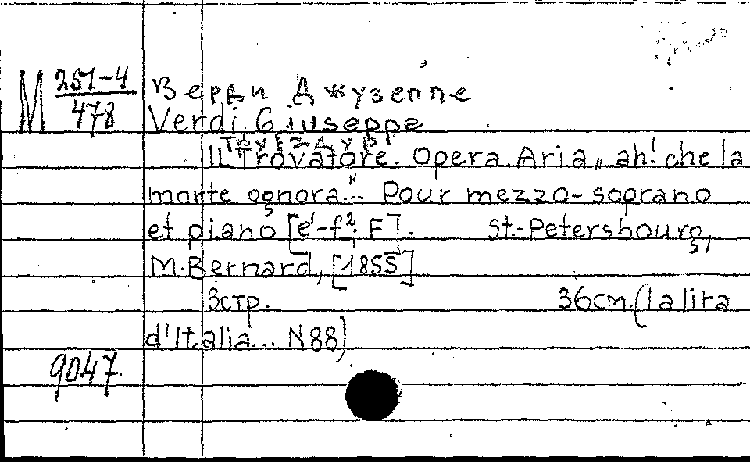 M 251-4
478
Верди Джузеппе
Verdi Giuseppe
Трубадур
Il Trovatore. Opera. Aria „ah! che la
morte ognora..." Pour mezzo-soprano
et piano [e¹-f²; F]. St-Petersbourg,
M. Bernard, [1855]
3стр. 36см. (La lira
d'Italia... N88)
9047.